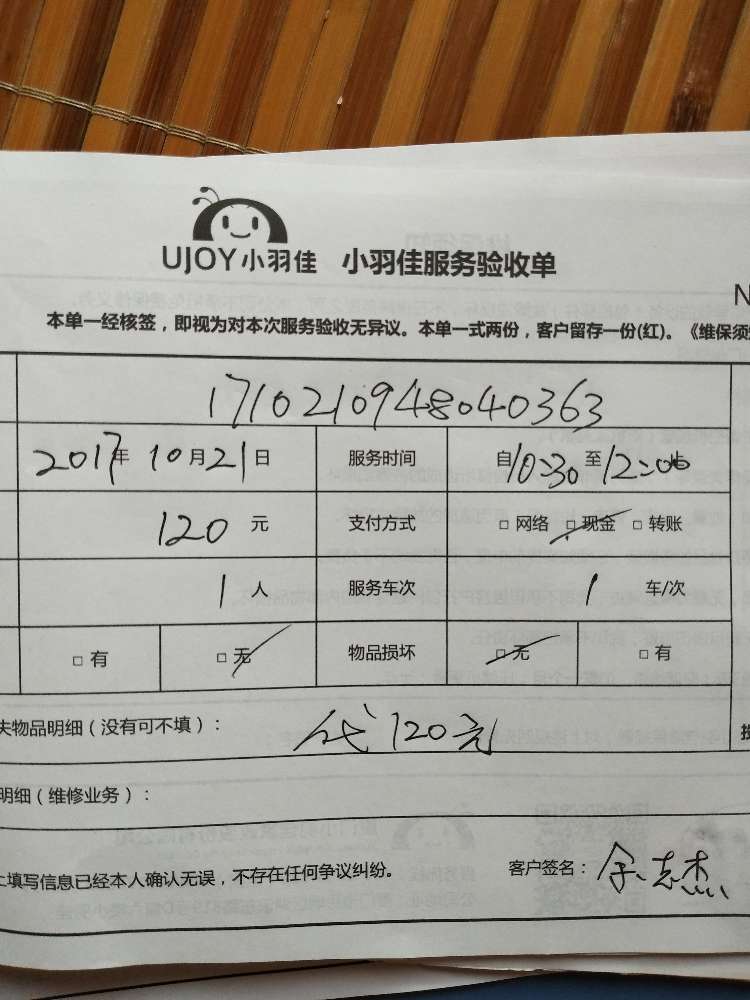 UJOY小羽佳 小羽佳服务验收单
N
本单一经核签，即视为对本次服务验收无异议。本单一式两份，客户留存一份(红)。《维保须
1710210948040363
2017年 10月21日 服务时间 自10:30至12:00
120元 支付方式 □ 网络 □ 现金 □ 转账
1人 服务车次 1 车/次
□ 有 □ 无 物品损坏 □ 无 □ 有
失物品明细（没有可不填）： 120元
明细（维修业务）：
上填写信息已经本人确认无误，不存在任何争议纠纷。 客户签名：余志杰